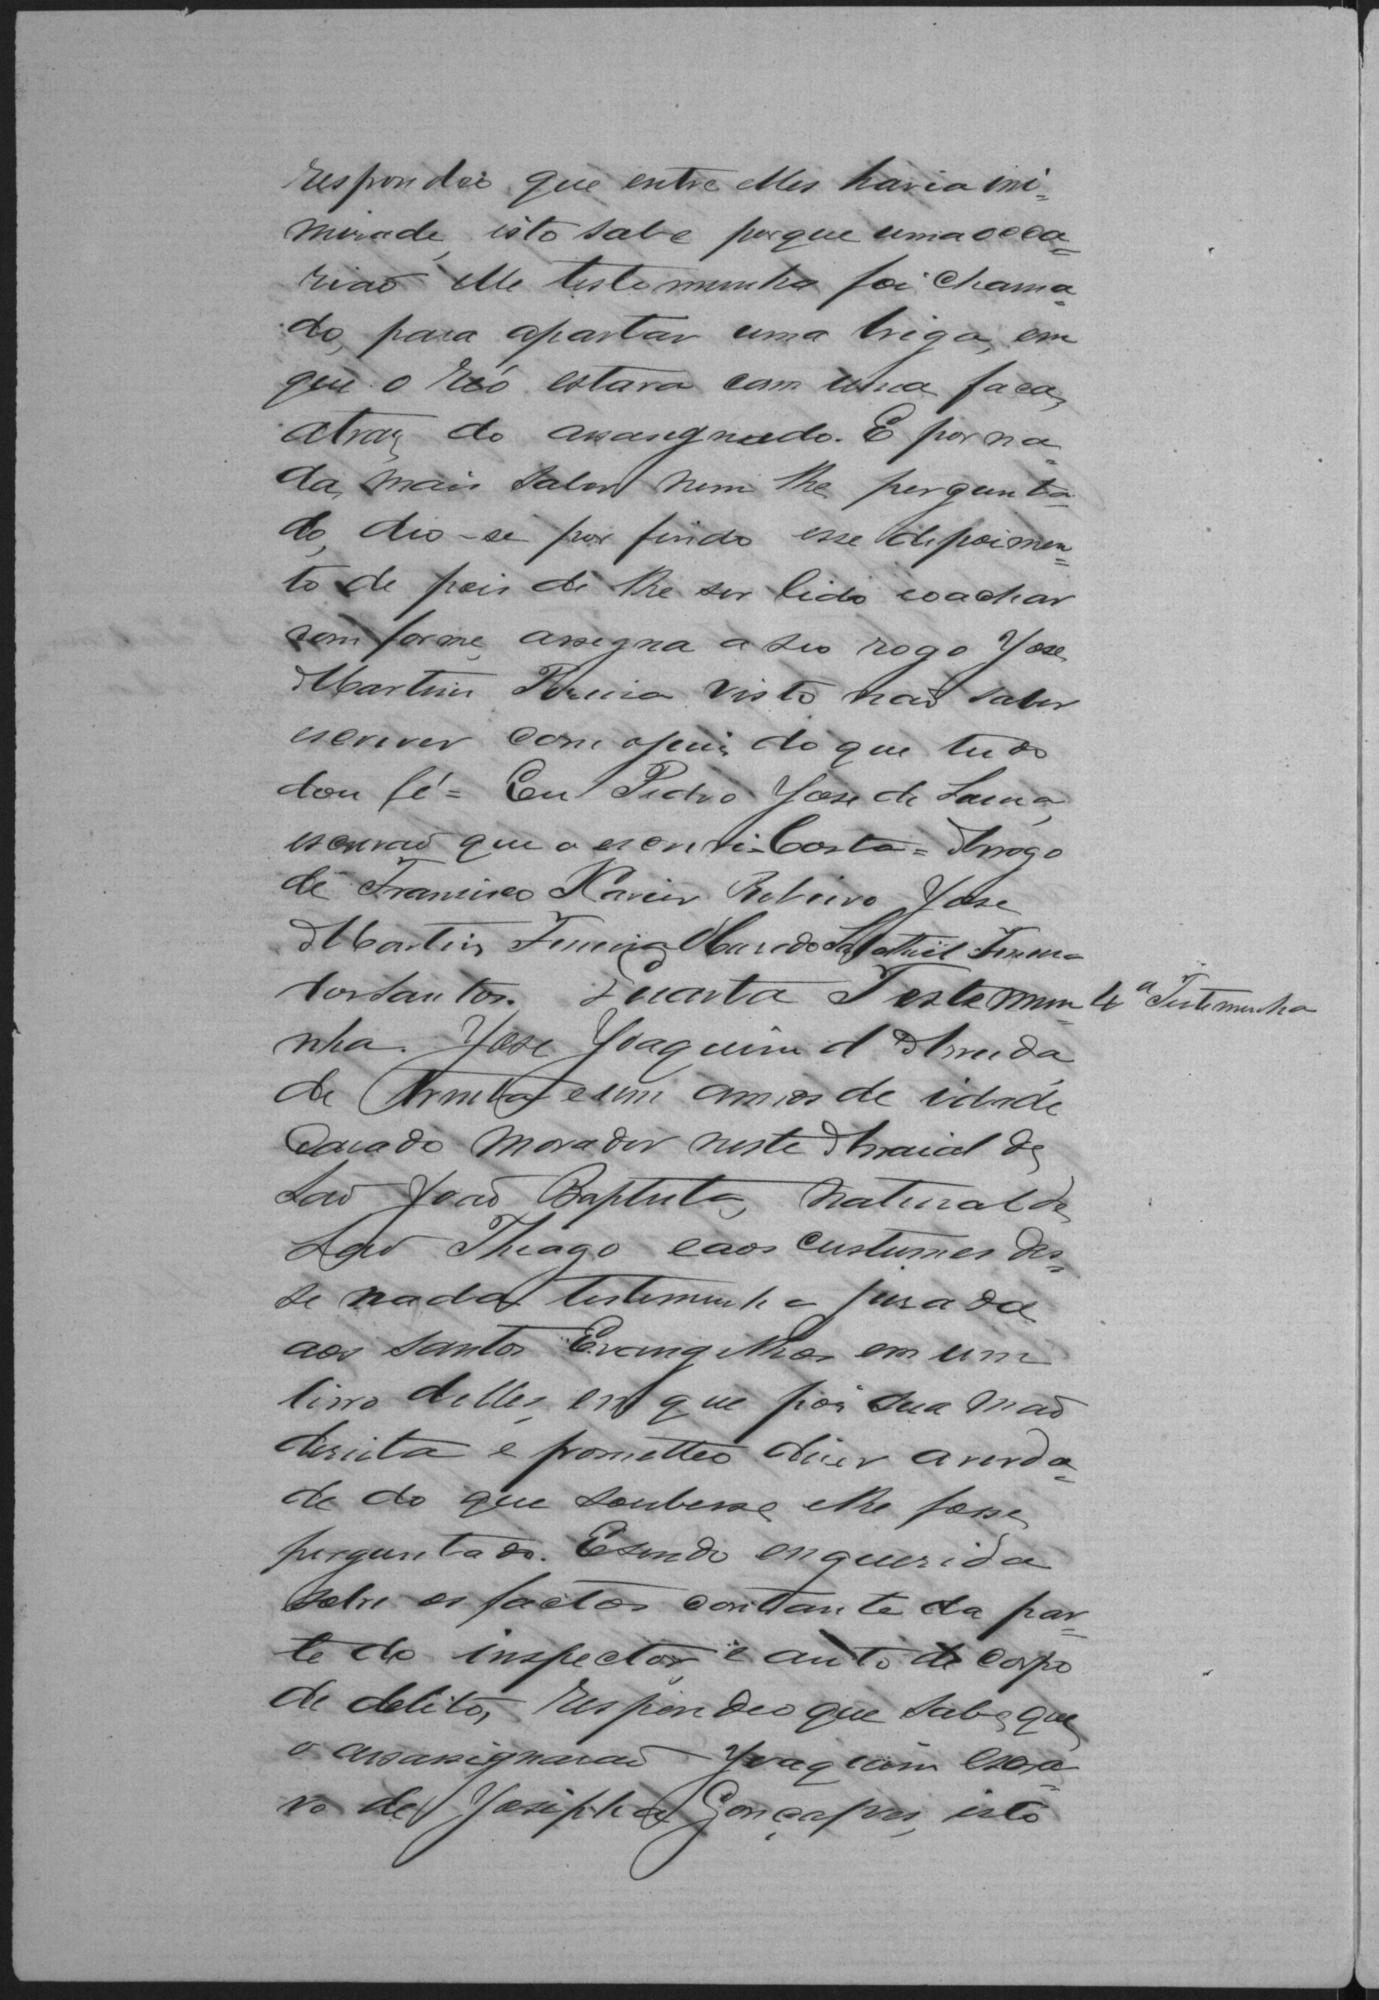 respondeo que entre elles havia ini-
misade, isto sabe porque uma occa-
zião elle testemunha foi chama-
do, para apartar uma briga, em
que o reó estava com uma faca,
atraz do assasignado. E por na-
da mais saber nem lhe pergunta-
do, dio-se por findo esse depoimen-
to de pois de lhe ser lido e o achar
comforme, assigna a seo rogo Jose
Martins Pereira visto não saber
escrever com o juis do que tudo
dou fé = Eu Pedro Jose de Lacerda
escrivão que o escrevi = Costa = Arrogo
de Francisco Xavier Ribeiro Jose
Martins Ferreira Salathiel
dos Santos. Quarta Testemun-
4ª Testemunha
nha. Jose Joaquim d'Arruda
de trinta e um annos de idade
Casado morador neste Arraial de
São João Baptista, natural de
São Thiago e aos custumes dis-
se nada testemunha jurada
aos Santos Evangelhos em um
livro delles, em que pôs sua mão
direita e prometteo dizer a verda-
de do que soubesse, e lhe fosse
perguntado. E sendo enquerida
sobre os factos constante da par-
te do inspector e auto de corpo
de delito, respondeo que sabe, que
o assassignarão Joaquim escra-
vo de Josepha Gonçalves, isto